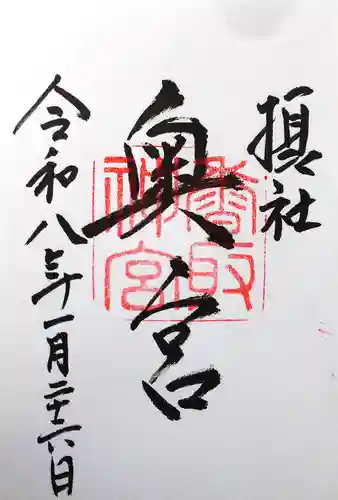 摂社
奥宮
香取神宮
令和八年十一月二十六日